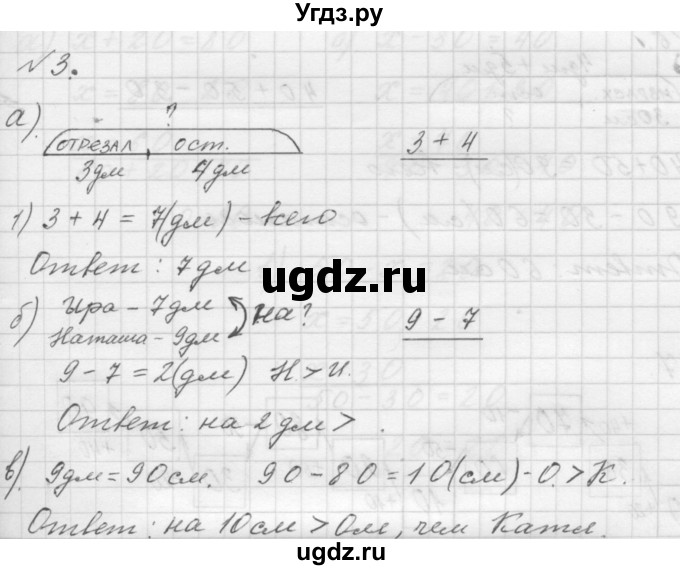 Угдз.ру
№3.
а).
?
ОТРЕЗАЛ ост.
3дм 4дм
3 + 4
1) 3 + 4 = 7(дм) - всего
Ответ: 7дм
ugdz.ru
б) Ира - 7дм
Наташа - 9дм
на?
9 - 7
9 - 7 = 2(дм) Н. > И.
Ответ: на 2дм > .
в). 9дм = 90см. 90 - 80 = 10(см) - О. > К.
Ответ: на 10см > Ом, чем Катл.
ugdz.ru